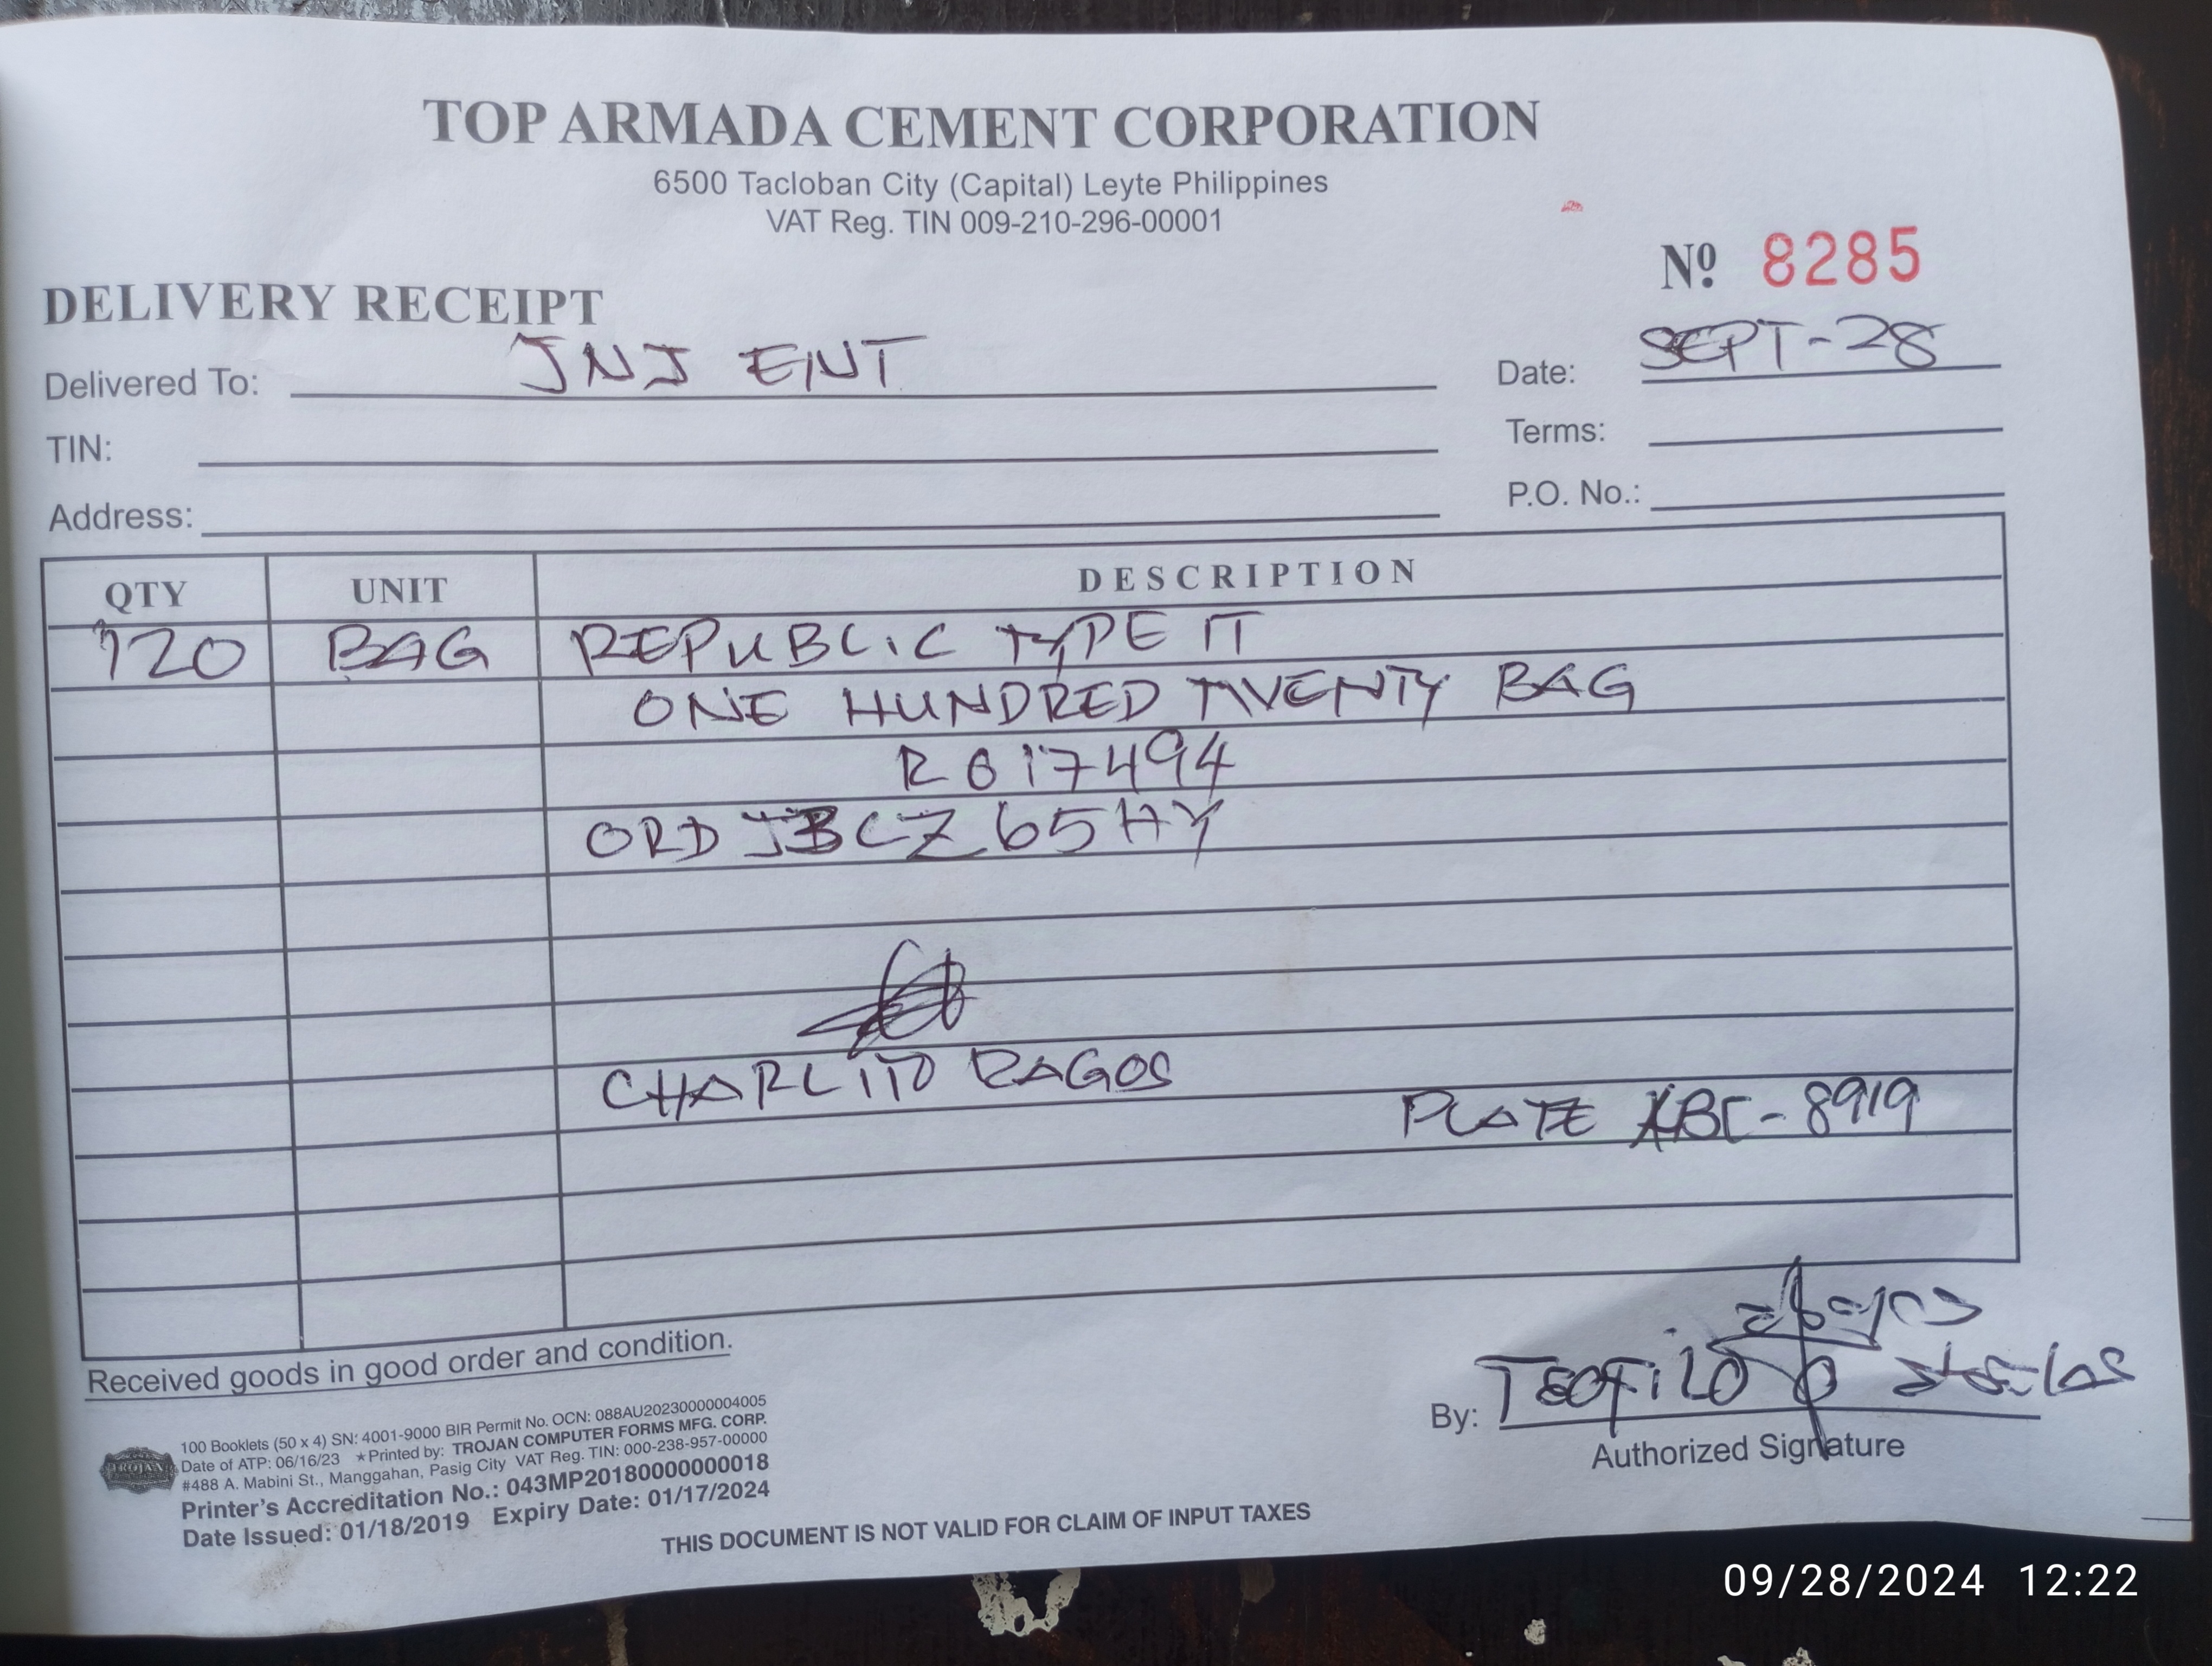 TOP ARMADA CEMENT CORPORATION
6500 Tacloban City (Capital) Leyte Philippines
VAT Reg. TIN 009-210-296-00001
Nº 8285
DELIVERY RECEIPT
Delivered To: JNJ ENT
Date: SEPT-28
TIN:
Terms:
Address:
P.O. No.:
QTY UNIT DESCRIPTION
120 BAG REPUBLIC TYPE IT
ONE HUNDRED TWENTY BAG
R017494
ORD JBCZ65HY
CHARLITO RAGOS
PLATE ABC-8919
Received goods in good order and condition.
By: TEOFILO
Authorized Signature
100 Booklets (50 x 4) SN: 4001-9000 BIR Permit No. OCN: 088AU20230000004005
Date of ATP: 06/16/23 ★Printed by: TROJAN COMPUTER FORMS MFG. CORP.
#488 A. Mabini St., Manggahan, Pasig City VAT Reg. TIN: 000-238-957-00000
Printer's Accreditation No.: 043MP20180000000018
Date Issued: 01/18/2019 Expiry Date: 01/17/2024
TROJAN
THIS DOCUMENT IS NOT VALID FOR CLAIM OF INPUT TAXES
09/28/2024 12:22